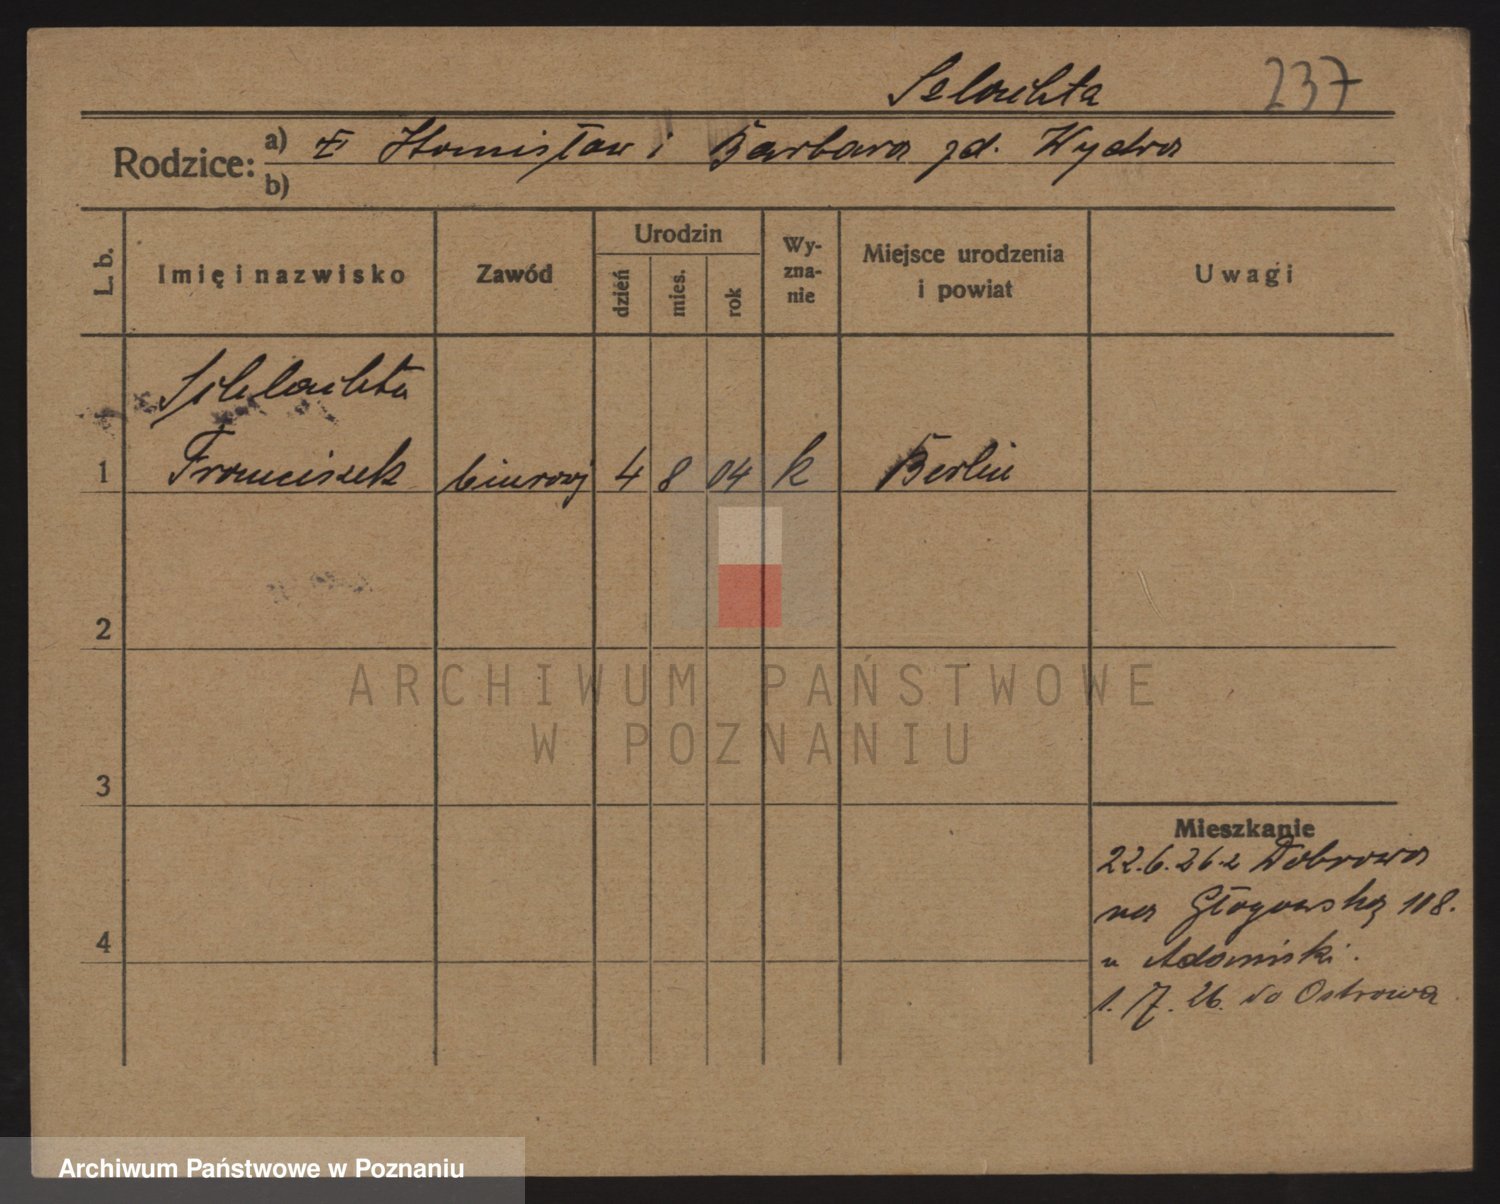 Szlachta 237
Rodzice: a) Stanisław i Barbara zd. Wydra
b)
L. b. Imię i nazwisko Zawód Urodzin dzień mies. rok Wy-zna-nie Miejsce urodzenia i powiat Uwagi
Schlachta
1 Franciszek biurowy 4 8 04 k Berlin
2
3
4
Mieszkanie
22.6.26 z Dobrowa
na Głogowską 118.
u Adamski.
1. 7. 26. do Ostrowa
ARCHIWUM PAŃSTWOWE
W POZNANIU
Archiwum Państwowe w Poznaniu